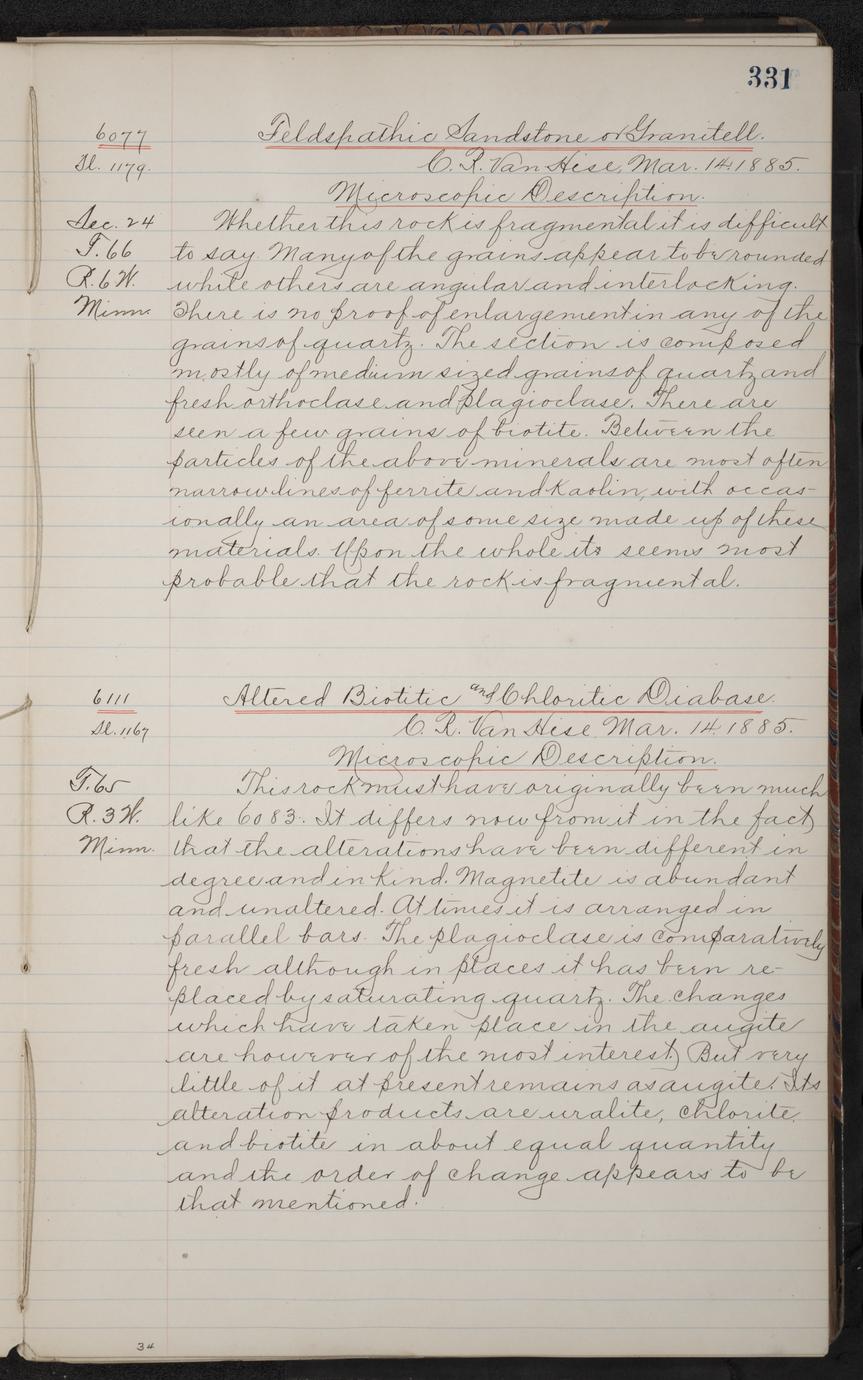 331
6077 Feldspathic Sandstone or Granitell.
Sl. 1179. C. R. Van Hise, Mar. 14 1885.
Microscopic Description.
Sec. 24 Whether this rock is fragmental it is difficult
T. 66 to say. Many of the grains appear to be rounded
R. 6 W. while others are angular and interlocking.
Minn. There is no proof of enlargement in any of the
grains of quartz. The section is composed
mostly of medium sized grains of quartz and
fresh orthoclase and plagioclase. There are
seen a few grains of biotite. Between the
particles of the above minerals are most often
narrow lines of ferrite and Kaolin, with occas-
ionally an area of some size made up of these
materials. Upon the whole it seems most
probable that the rock is fragmental.
6111 Altered Biotitic and Chloritic Diabase.
Sl. 1167 C. R. Van Hise Mar. 14, 1885.
Microscopic Description.
T. 65 This rock must have originally been much
R. 3 W. like 6083. It differs now from it in the fact
Minn. that the alterations have been different in
degree and in kind. Magnetite is abundant
and unaltered. At times it is arranged in
parallel bars. The plagioclase is comparatively
fresh although in places it has been re-
placed by saturating quartz. The changes
which have taken place in the augite
are however of the most interest. But very
little of it at present remains as augite. Its
alteration products are uralite, chlorite,
and biotite in about equal quantity
and the order of change appears to be
that mentioned.
34